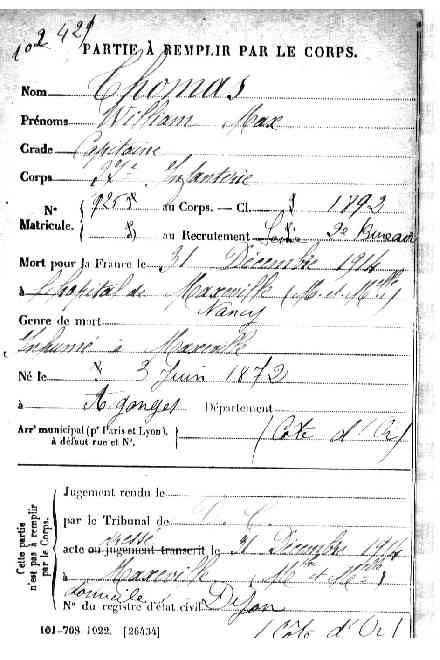 102 429
PARTIE À REMPLIR PAR LE CORPS.
Nom Thomas
Prénoms William Max
Grade Capitaine
Corps Infanterie
N° Matricule.
au Corps. — Cl. 1892
au Recrutement 2e Bureau
Mort pour la France le 31 Décembre 1914
à l'hôpital de Maxeville (M. et Mlle)
Nancy
Genre de mort
Inhumé à Maxeville
Né le 3 Juin 1872
à Agonges Département
Arr' municipal (pr Paris et Lyon), à défaut rue et N°.
(Côte d'Or)
Cette partie n'est pas à remplir par le Corps.
Jugement rendu le
par le Tribunal de
dressé
acte ou jugement transcrit le 31 Décembre 1914
à Maxeville (Mthe et Mlle)
domicile
N° du registre d'état civil Dijon
101-708 1922. [26434] (Côte d'Or)